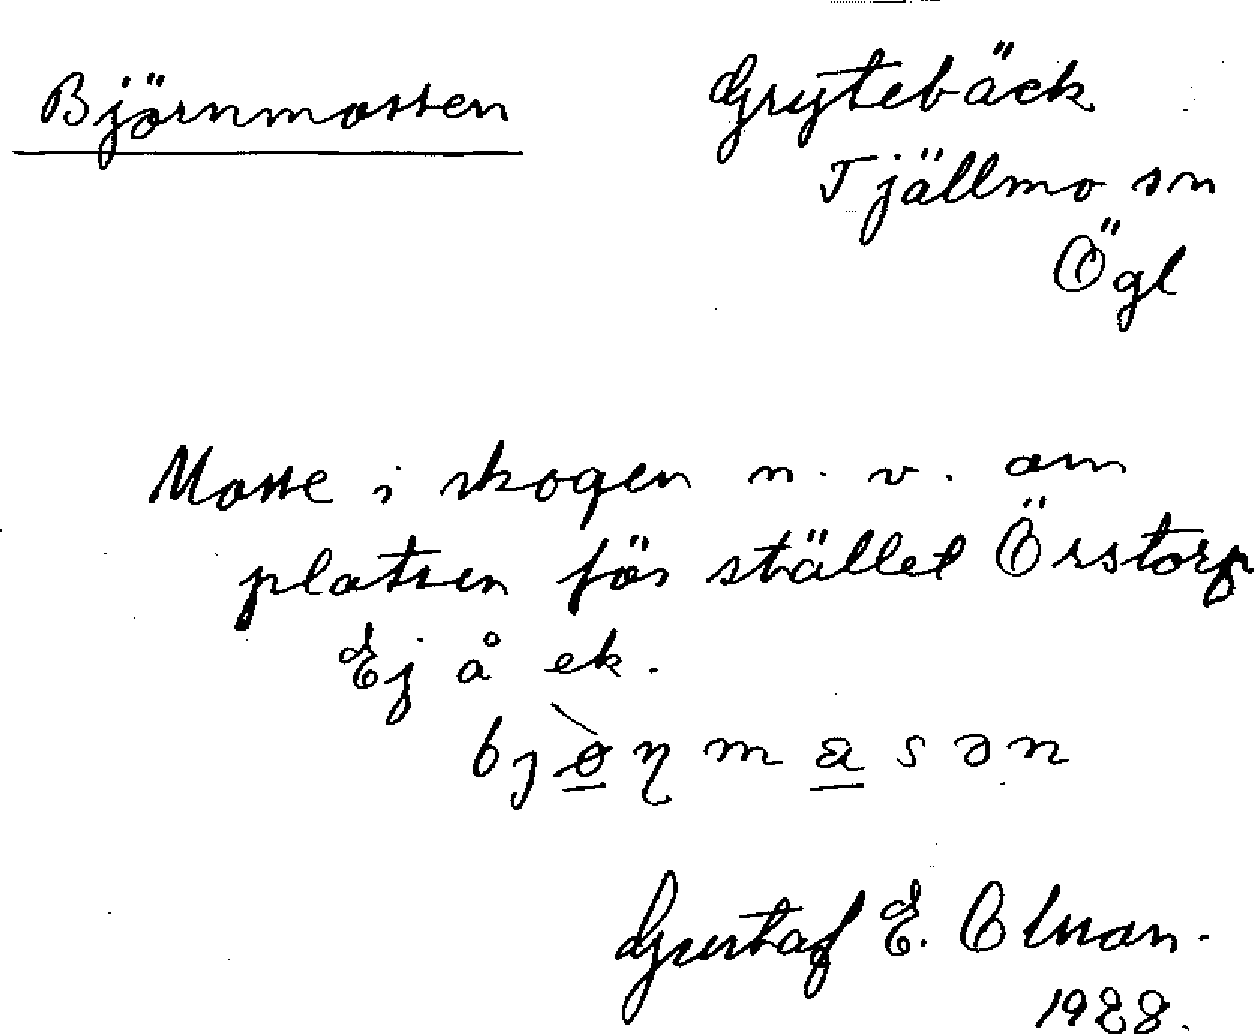 Björnmossen
Grytebäck
Tjällmo sn
Ögl
Mosse i skogen n. v. om
platsen för stället Örstorp
Ej å ek.
Gustaf E.